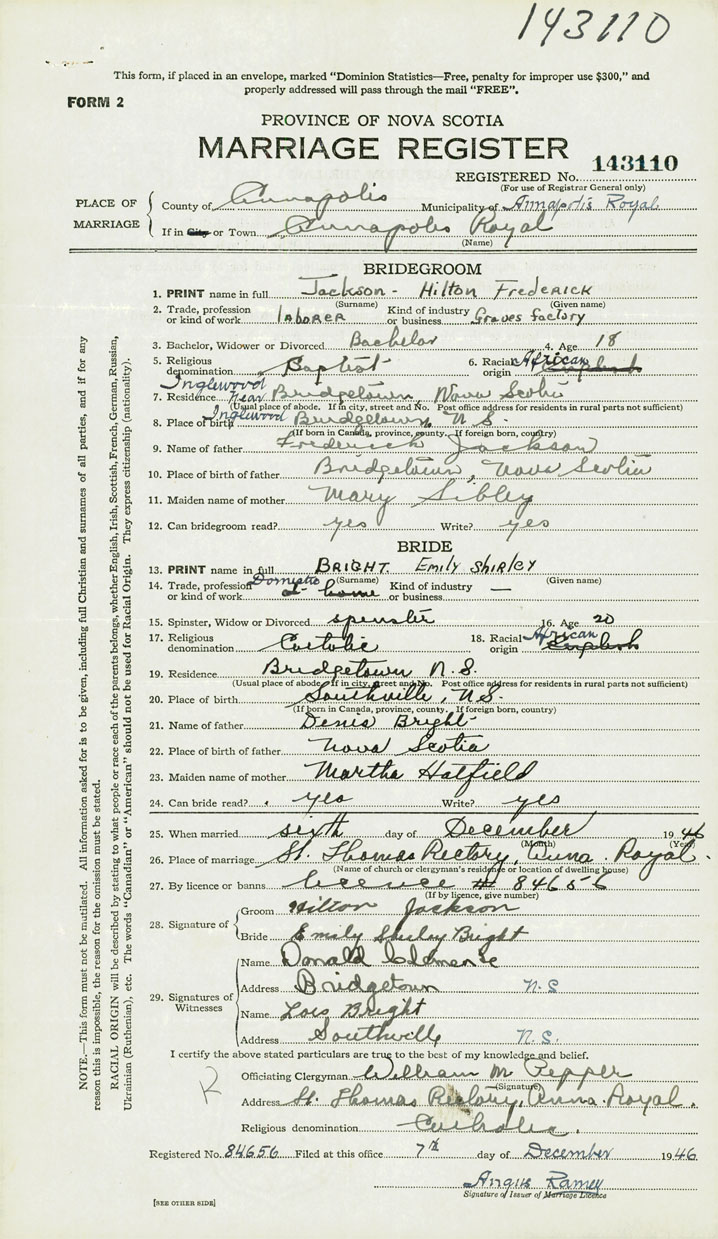 143110
This form, if placed in an envelope, marked "Dominion Statistics—Free, penalty for improper use $300," and
properly addressed will pass through the mail "FREE".
FORM 2
PROVINCE OF NOVA SCOTIA
MARRIAGE REGISTER
143110
REGISTERED No.
(For use of Registrar General only)
PLACE OF MARRIAGE
County of Annapolis Municipality of Annapolis Royal
If in City or Town Annapolis Royal
(Name)
BRIDEGROOM
1. PRINT name in full Jackson - Hilton Frederick
(Surname) (Given name)
2. Trade, profession or kind of work LABORER Kind of industry or business Graves factory
3. Bachelor, Widower or Divorced Bachelor 4. Age 18
5. Religious denomination Baptist 6. Racial origin African English
Inglewood
7. Residence near Bridgetown, Nova Scotia
(Usual place of abode. If in city, street and No. Post office address for residents in rural parts not sufficient)
8. Place of birth Inglewood Bridgetown, N.S.
(If born in Canada, province, county. If foreign born, country)
9. Name of father Frederick Jackson
10. Place of birth of father Bridgetown, Nova Scotia
11. Maiden name of mother Mary Sibley
12. Can bridegroom read? yes Write? yes
BRIDE
13. PRINT name in full BRIGHT Emily Shirley
(Surname) (Given name)
14. Trade, profession or kind of work Domestic at home Kind of industry or business —
15. Spinster, Widow or Divorced spinster 16. Age 20
17. Religious denomination Catholic 18. Racial origin African English
19. Residence Bridgetown N.S.
(Usual place of abode. If in city, street and No. Post office address for residents in rural parts not sufficient)
20. Place of birth Southville, N.S.
(If born in Canada, province, county. If foreign born, country)
21. Name of father Denis Bright
22. Place of birth of father Nova Scotia
23. Maiden name of mother Martha Hatfield
24. Can bride read? yes Write? yes
25. When married sixth day of December 1946
(Month) (Year)
26. Place of marriage St. Thomas Rectory, Anna. Royal.
(Name of church or clergyman's residence or location of dwelling house)
27. By licence or banns licence # 84656
(If by licence, give number)
28. Signature of
Groom Hilton Jackson
Bride Emily Shirley Bright
29. Signatures of Witnesses
Name Donald
Address Bridgetown N.S
Name Lois Bright
Address Southville N.S.
I certify the above stated particulars are true to the best of my knowledge and belief.
Officiating Clergyman William M. Pepper
(Signature)
Address St. Thomas Rectory, Anna. Royal.
Religious denomination Catholic.
Registered No. 84656 Filed at this office 7th day of December 1946.
Angus Ramey
Signature of Issuer of Marriage Licence
[SEE OTHER SIDE]
NOTE.—This form must not be mutilated. All information asked for is to be given, including full Christian and surnames of all parties, and if for any
reason this is impossible, the reason for the omission must be stated.
RACIAL ORIGIN will be described by stating to what people or race each of the parents belongs, whether English, Irish, Scottish, French, German, Russian,
Ukrainian (Ruthenian), etc. The words "Canadian" or "American" should not be used for Racial Origin. They express citizenship (nationality).